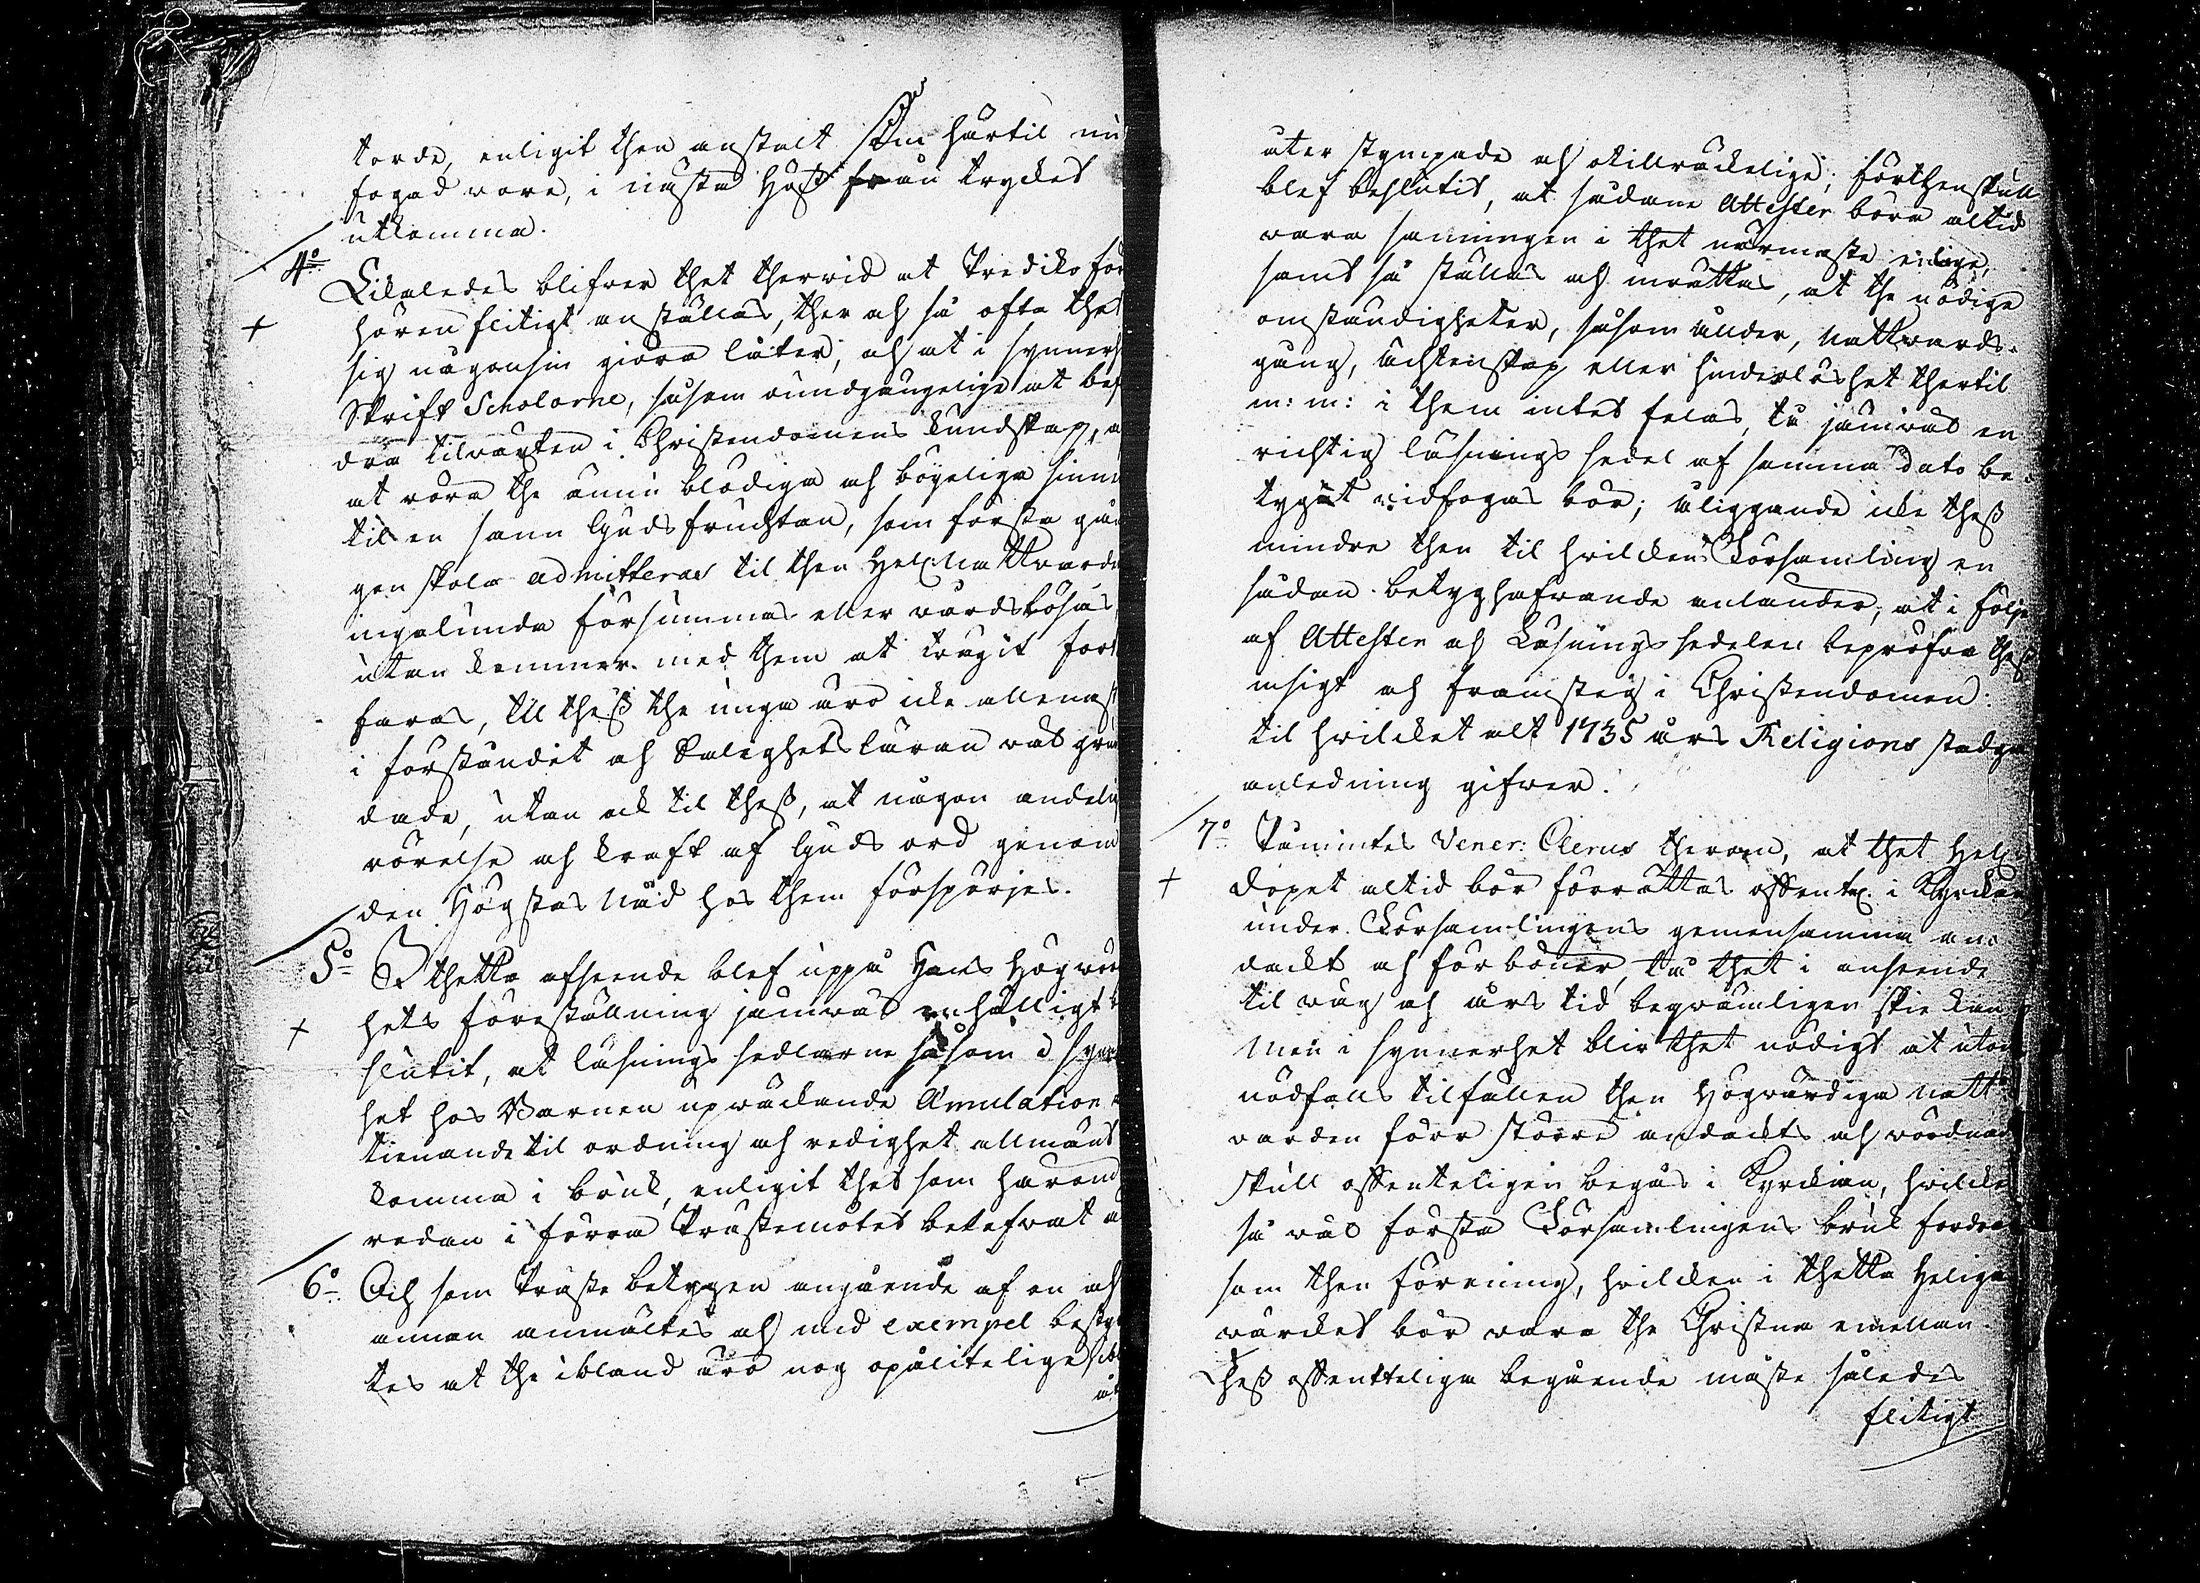 torde, enligit then anstalt som härtil nu
fogad vore, i nästa Höst från trycket
utkomma.
4o Likaledes blifver thet thervid at Prediko för
hören flitigt anställas, ther och så ofta thet
sig någonsin giöra låter, och at i synnerh
Skrift Scholarne, såsom oundgängelige at bef
dra tilväxten i Christendomens kundskap, o
at röra the ännu blödiga och böyeliga sinn
til en sann Gudsfruchtan, som första gån
gen skola admitteras til then Hel. Nattvarde
ingalunda försummas eller vårdslösas
utan kommer med them at trägit fort
faras, til theß the unga äro icke allenast
i förståndet och Salighetsläran väl grun
dade, utan ock til theß, at någon andelig
rörelse och kraft af Guds ord genom
den Högstas Nåd hos them förspörjes.
5o I thetta afseende blef uppå Hans Högvör
hets föreställning jämväl enhälligt b
slutit, at läsnings sedlarne såsom i synner
het hos Barnen upväckande Æmulation o
tienande til ordning och redighet allmänt
komma i bruk, enligit thet som härom
redan i förra Prästemötet belefvat ä
6o Och som Präste betygen angående af en och
annan anmältes och med exempel bestyr
tes at the ibland äro nog opålitelige,
åter stympade och otilräckelige; förthenskull
blef beslutit, at sådane Attester böra altid
vara sanningen i thet närmaste enlige,
samt så ställas och inrättas, at the nödige
omständigheter, såsom ålder, Nattvards-
gång, ächtenskap eller hinderlöshet thertil
m: m: i them intet felas, tå jämväl en
richtig läsnings sedel af samma Dato be-
tyget vidfogas bör; åliggande icke theß
mindre then til hvilckens Församling en
sådan betyghafvande anländer, at i följe
af Attesten och Läsnings sedelen bepröfva theß
insigt och framsteg i Christendomen.
til hvilcket alt 1735 års Religions stadga
anledning gifver.
7o Påmintes Vener: Clerus therom, at thet Hel.
dopet altid bör förrättas offentl. i Kyrckan
under Församlingens gemensamma an-
dackt och förböner, tå thet i anseende
til väg och års tid beqvämligen skie kan
Men i synnerhet blir thet nödigt at utom
nödfalls tilfällen then Högvärdiga Natt-
varden förr större andackts och vördnad
skull offenteligen begås i Kyrckian, hvilcke
så väl första Församlingens bruk fordra
som then förening, hvilcken i thetta Heliga
värcket bör vara the Christna emellan.
Theß offenteliga begående måste således
flitigt